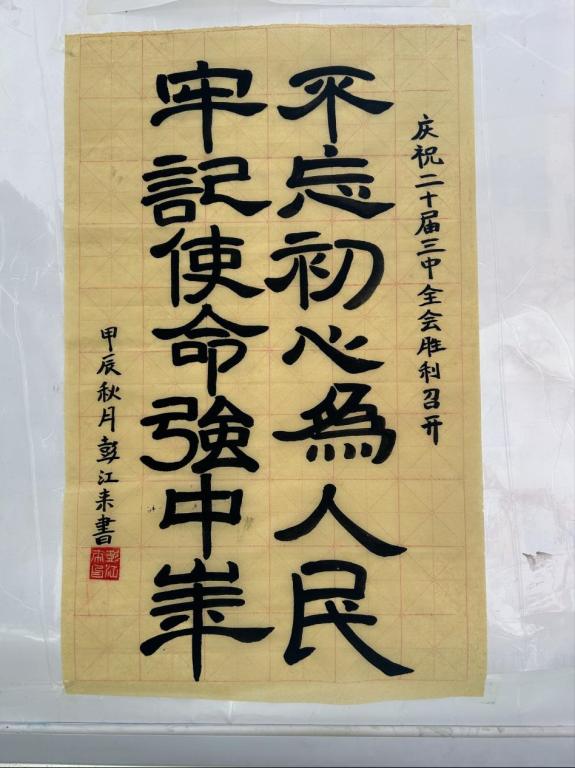 庆祝二十届三中全会胜利召开
不忘初心為人民
牢記使命強中華
甲辰秋月彭江来書